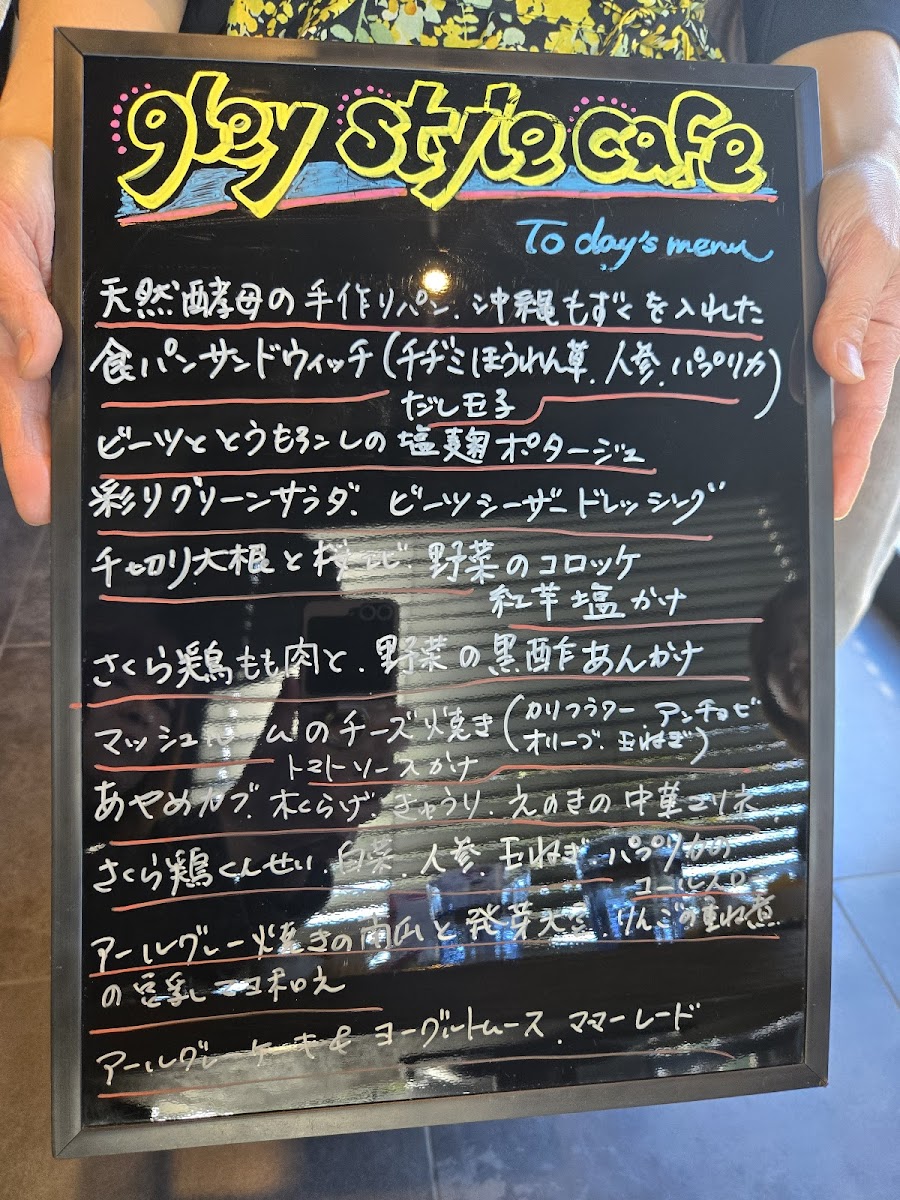 gley style cafe
To day's menu
天然酵母の手作りパン.沖縄もずくを入れた
食パンサンドウィッチ(チヂミほうれん草.人参.パプリカ)
だし玉子
ビーツととうもろこしの塩麹ポタージュ
彩りグリーンサラダ. ビーツシーザードレッシング
千切り大根と桜エビ.野菜のコロッケ
紅芋塩かけ
さくら鶏もも肉と.野菜の黒酢あんかけ
マッシュルームのチーズ焼き(カリフラワー アンチョビ
オリーブ.玉ねぎ)
トマトソースかけ
あやめカブ.木くらげ.きゅうり.えのきの中華マリネ
さくら鶏くんせい.白菜.人参.玉ねぎ.パプリカの
コールスロー
アールグレー焼きの南瓜と発芽大豆.りんごの重ね煮
の豆乳マヨ和え
アールグレーケーキ& ヨーグルトムース.ママーレード